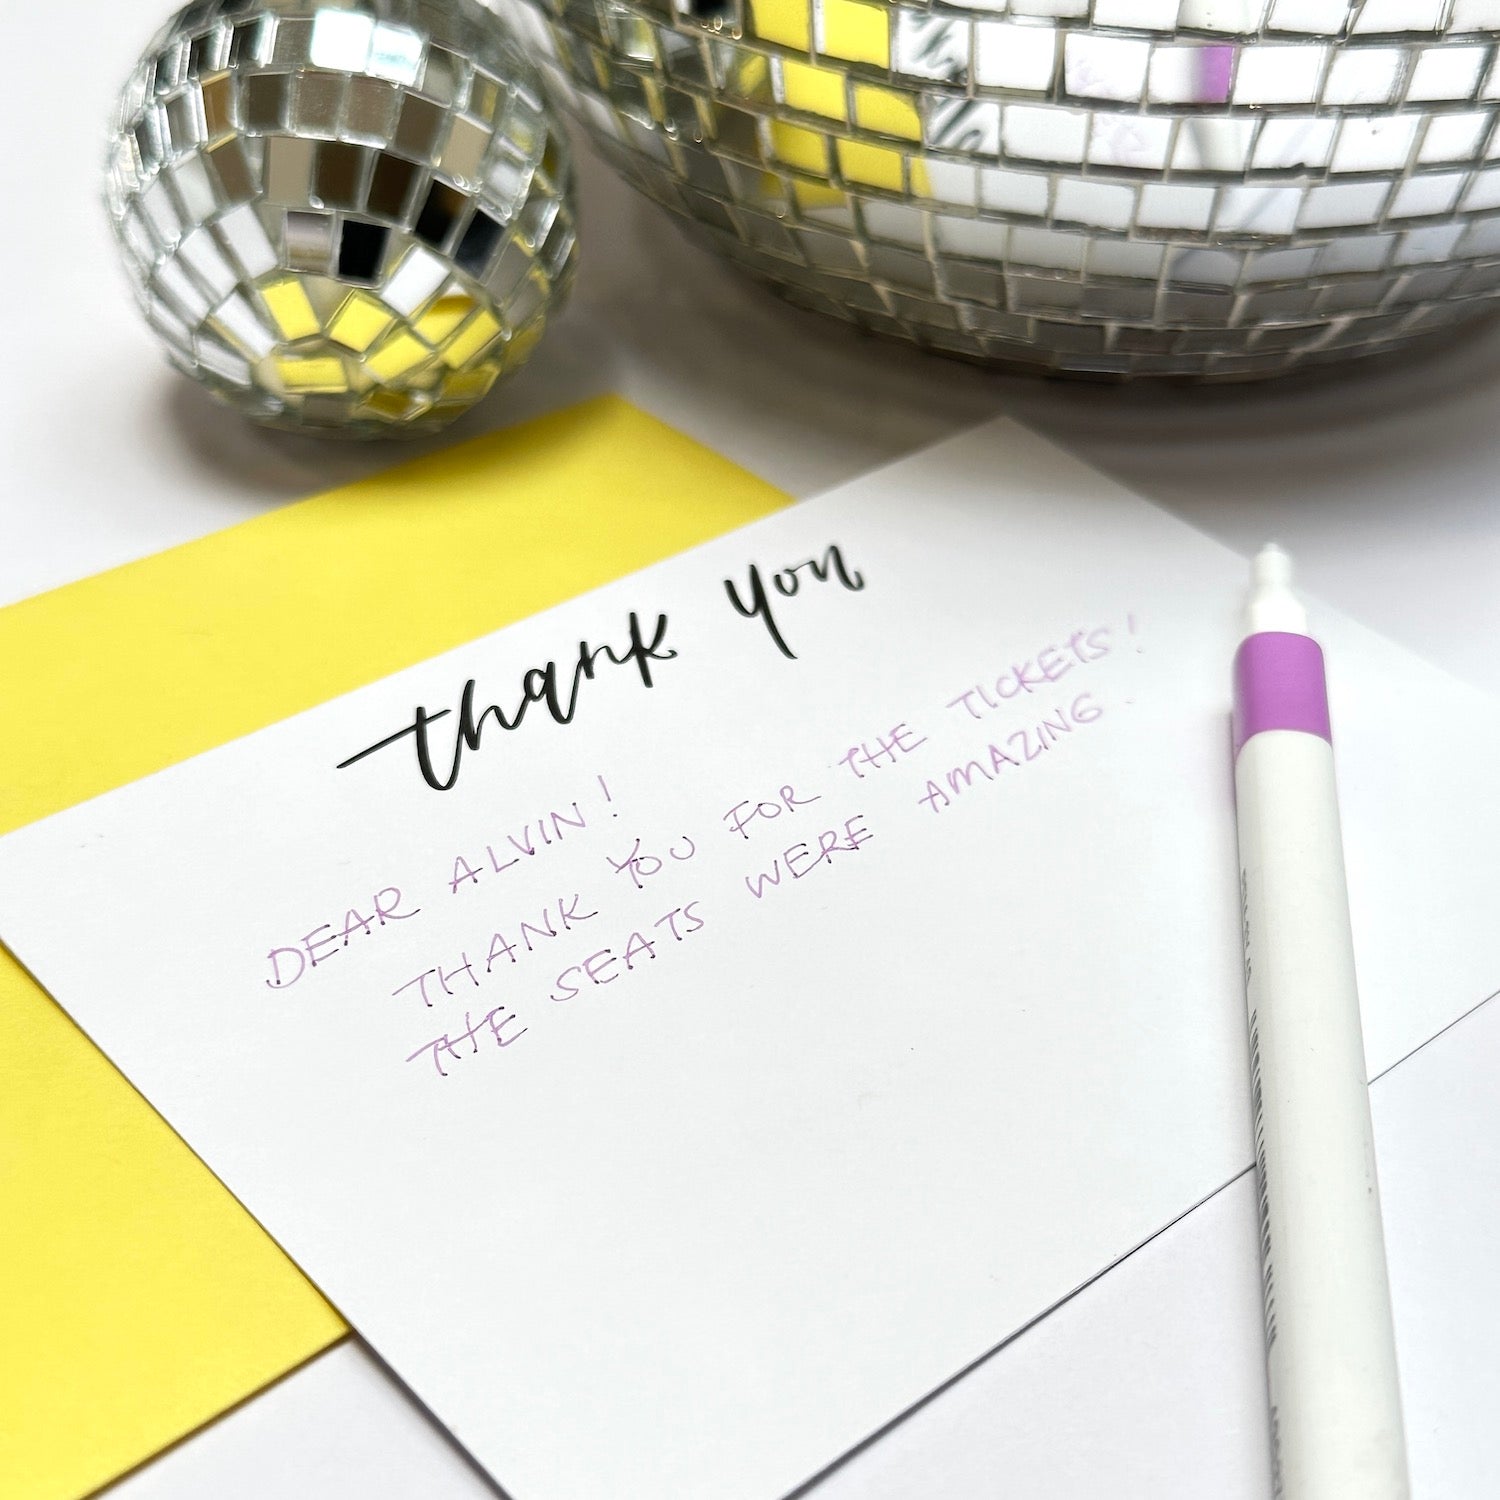 thank you
DEAR ALVIN!
THANK YOU FOR THE TICKETS!
THE SEATS WERE AMAZING.